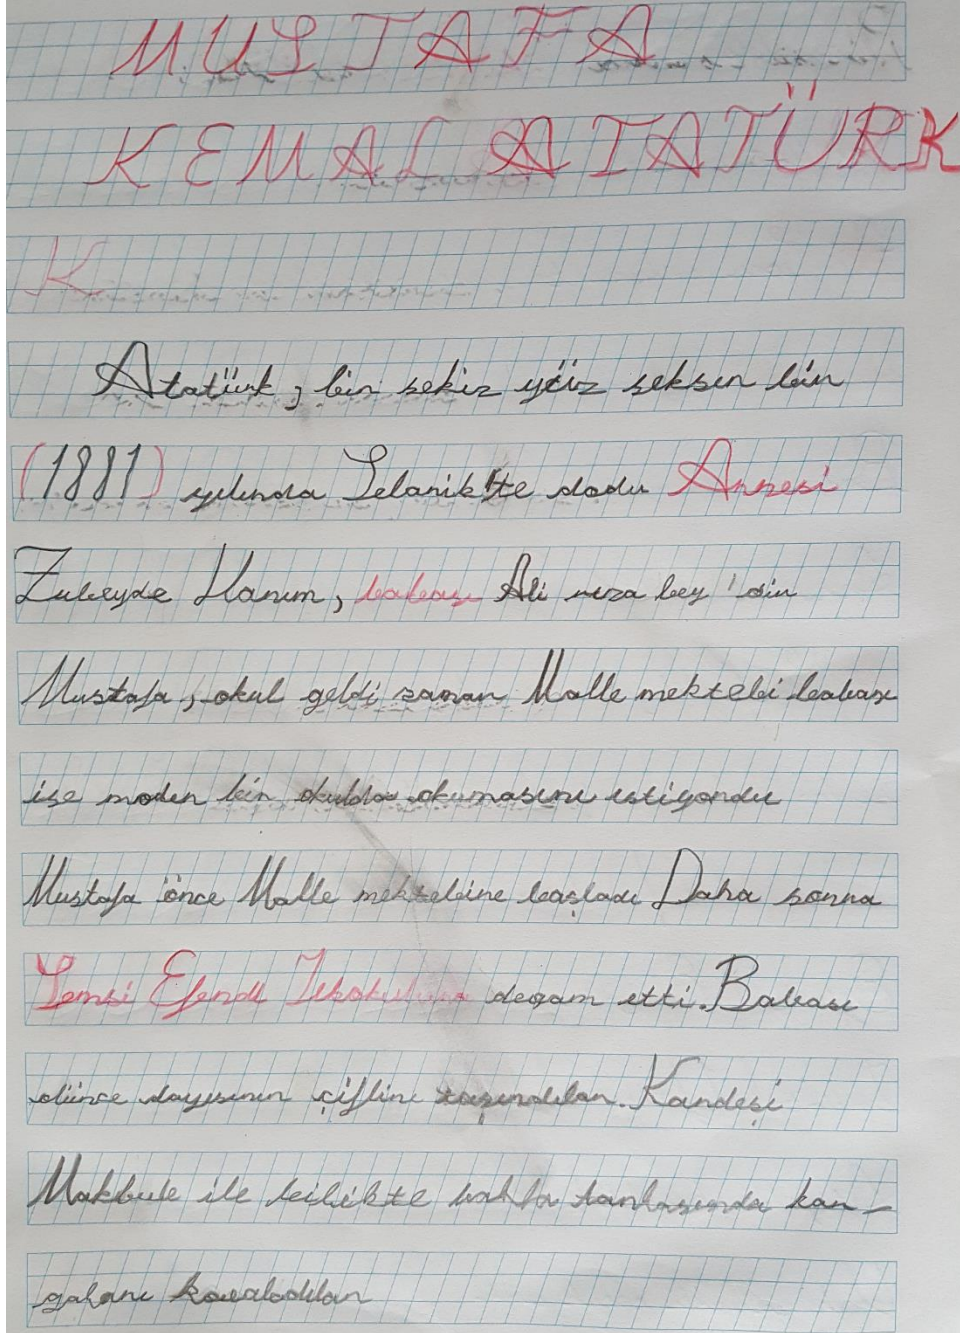 MUSTAFA
KEMAL ATATÜRK
K
Atatürk, bir sekiz yüz seksen bir
(1881) yılında Selanik'te dodu Annesi
Zubeyde Hanım, babası Ali rıza bey 'dir
Mustafa, okul geldi zaman Malle mektebi babası
ise moden bir okulda okumasını istiyordu
Mustafa önce Malle mektebine başladı Daha sonra
Şemsi Efendi İlkokuluna degam etti. Babası
ölünce dayısının çiflini taşındılar. Kardeşi
Makbule ile bilikte bakla tarlasında kar-
gaları kovaladılar